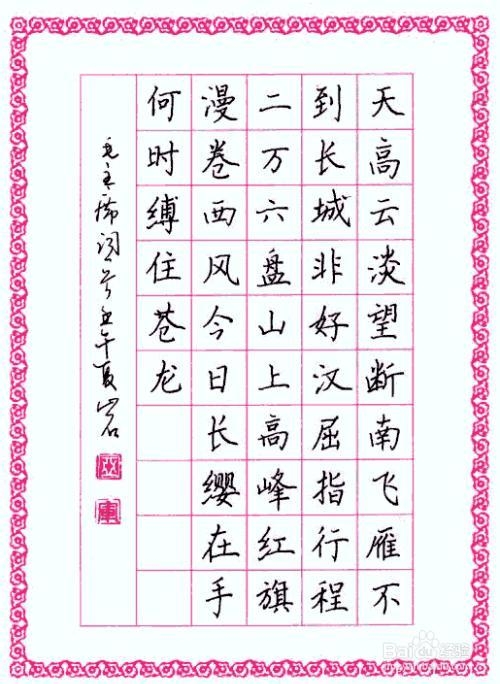 天高云淡望断南飞雁不
到长城非好汉屈指行程
二万六盘山上高峰红旗
漫卷西风今日长缨在手
何时缚住苍龙
毛主席词 午夏岩
Baidu经验